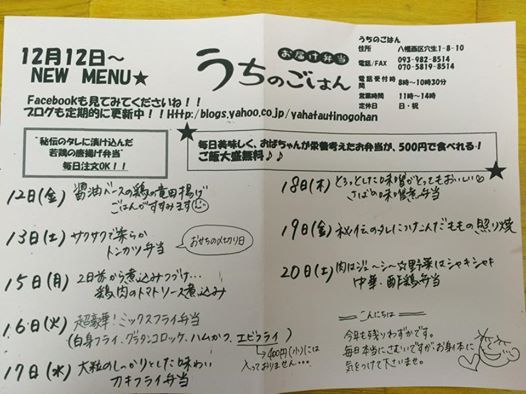 12月12日～
NEW MENU★
お届け弁当
うちのごはん
うちのごはん
住所 八幡西区穴生1-8-10
電話/FAX 093-982-8514
070-5819-8514
電話受付時間 8時～10時30分
営業時間 11時～14時
定休日 日・祝
Facebookも見てみてくださいね！！
ブログも定期的に更新中！！Http:/blogs.yahoo.co.jp/yahatautinogohan
"秘伝のタレに漬け込んだ
若鶏の唐揚げ弁当"
毎日注文OK！！
毎日美味しく、おばちゃんが栄養考えたお弁当が、500円で食べれる！
ご飯大盛無料♪♪
12日(金) 醤油ベースの鶏の竜田揚げ
ごはんがすすみます
13日(土) サクサクで柔らか
トンカツ弁当
おせちの〆切り日
15日(月) 2日前から煮込みつづけ…
鶏肉のトマトソース煮込み
16日(火) 超豪華！ミックスフライ弁当
(白身フライ、グラタンコロッケ、ハムかつ、エビフライ)
→400円(小)には
入っておりません…
17日(水) 大粒のしっかりとした味わい
カキフライ弁当
18日(木) とろっとした味噌がとってもおいしい
さばの味噌煮弁当
19日(金) 秘伝のタレにつけこんだももの照り焼
20日(土) 肉はジューシー☆野菜はシャキシャキ
中華・酢鶏弁当
こんにちは
今年も残りわずかです。
毎日本当にさむいですが、お身体に
気をつけて下さいませ。